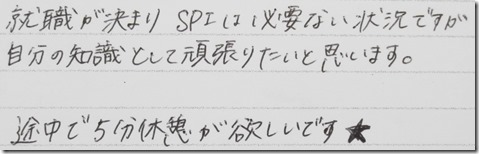 就職が決まり SPIは必要ない状況ですが
自分の知識として頑張りたいと思います。
途中で5分休憩が欲しいです★